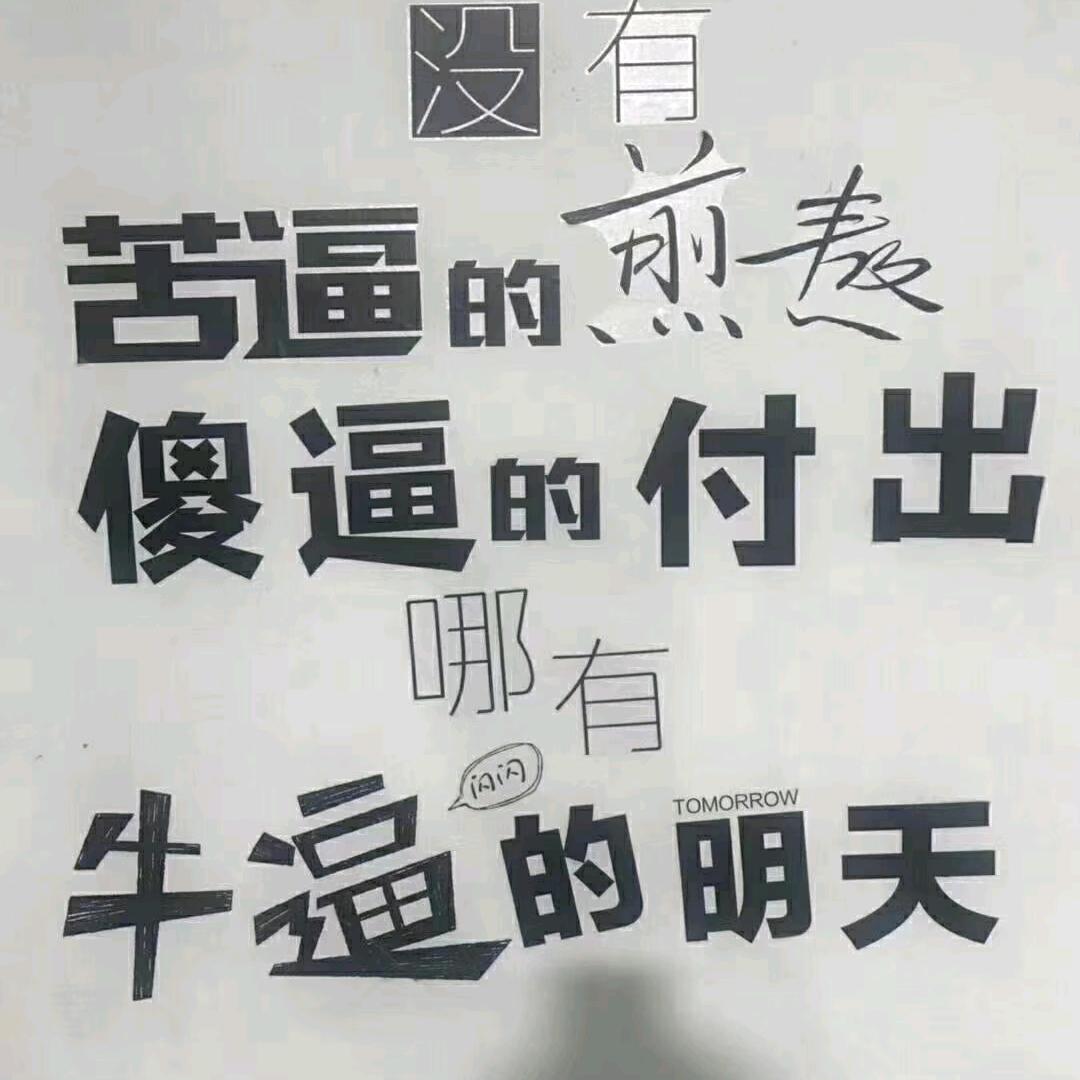 没有
苦逼的煎熬
傻逼的付出
哪有
闪闪
TOMORROW
牛逼的明天